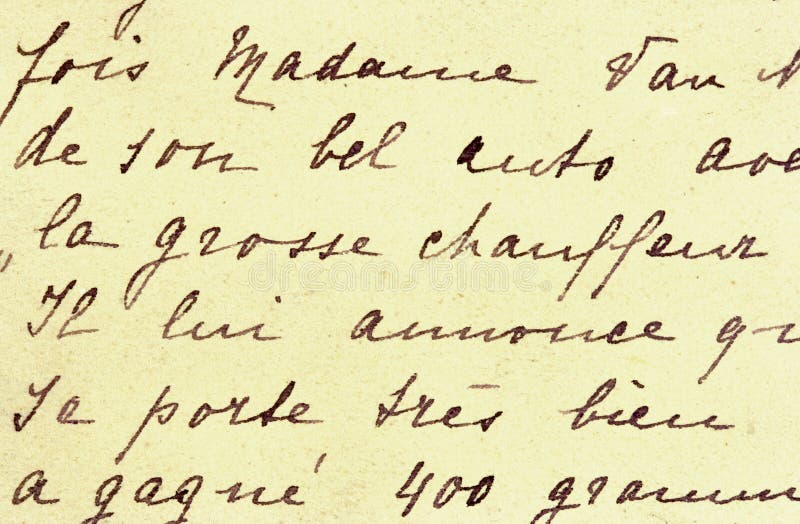 fois Madame Van N
de son bel auto ave
„la grosse chauffeur
Il lui annonce qu
se porte très bien
a gagné 400 gramm